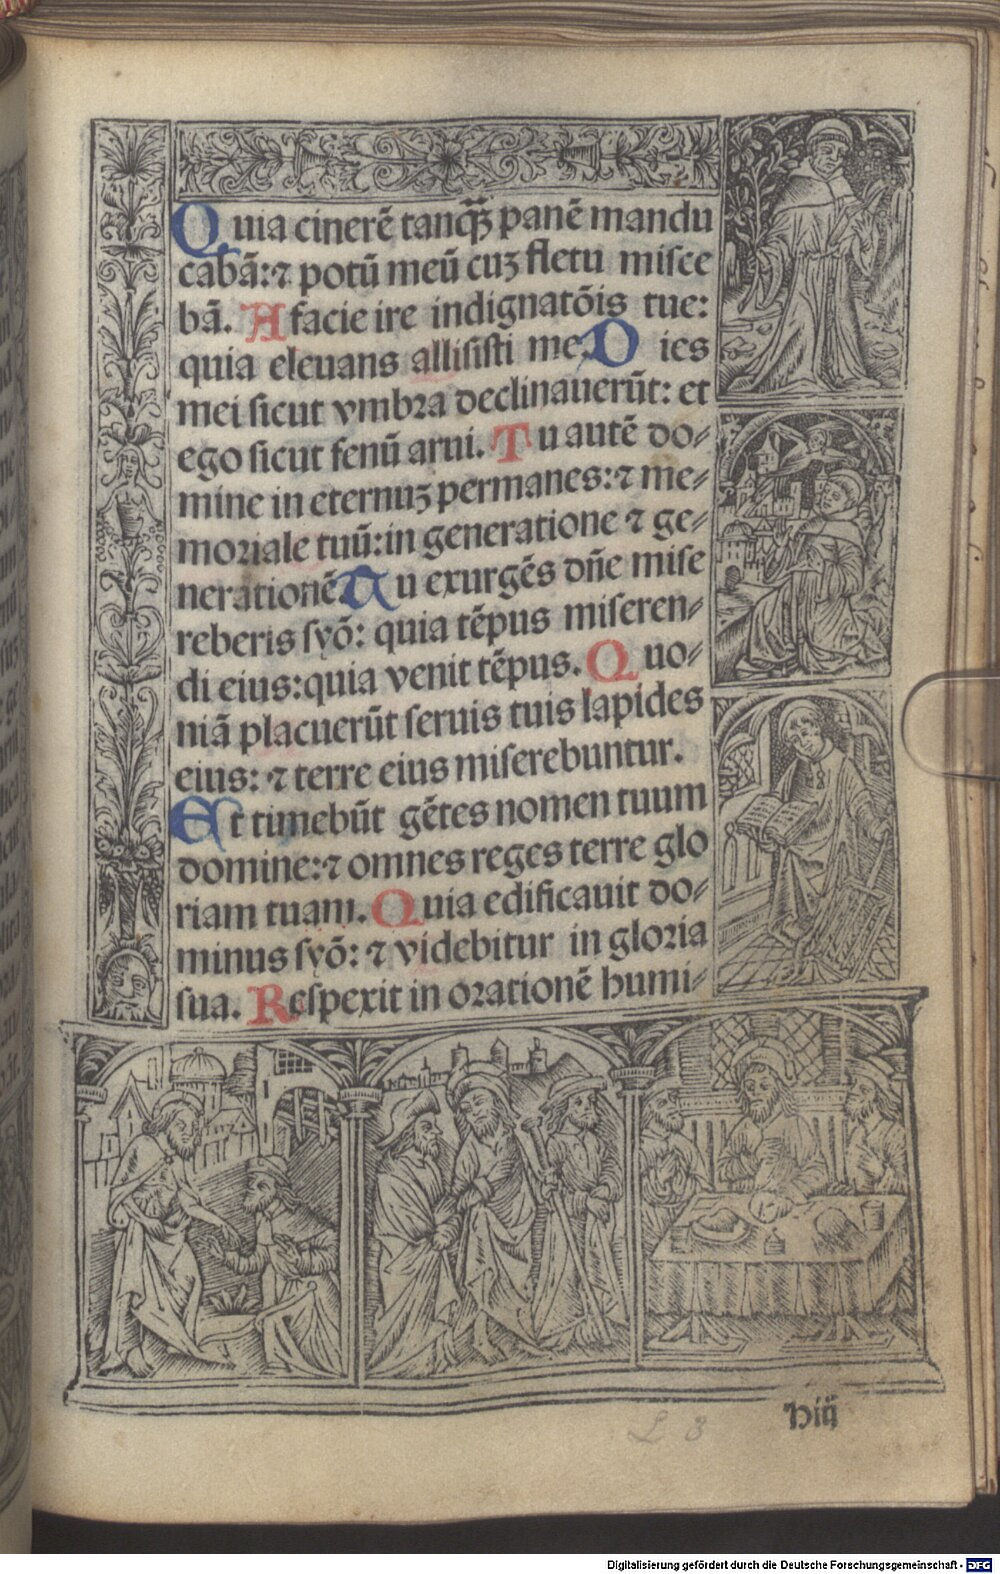 Quia cinerē tanqꝫ̄ panē mandu
cabā:⁊ potū meū cuꝫ fletu misce
bā. A facie ire indignatōis tue:
quia eleuans allisisti me. Dies
mei sicut vmbra declinauerūt: et
ego sicut fenū arui. Tu autē do⸗
mine in eternuꝫ permanes:⁊ me⸗
moriale tuū:in generatione ⁊ ge⸗
nerationē. Tu exurgēs dn̄e mise
reberis syō: quia tēpus miseren⸗
di eius:quia venit tēpus. Quo⸗
niā placuerūt seruis tuis lapides
eius: ⁊ terre eius miserebuntur.
Et timebūt gētes nomen tuum
domine:⁊ omnes reges terre glo
riam tuam. Quia edificauit do⸗
minus syō: ⁊ videbitur in gloria
sua. Respexit in orationē humi⸗
hiij
L 3
Digitalisierung gefördert durch die Deutsche Forschungsgemeinschaft - DFG